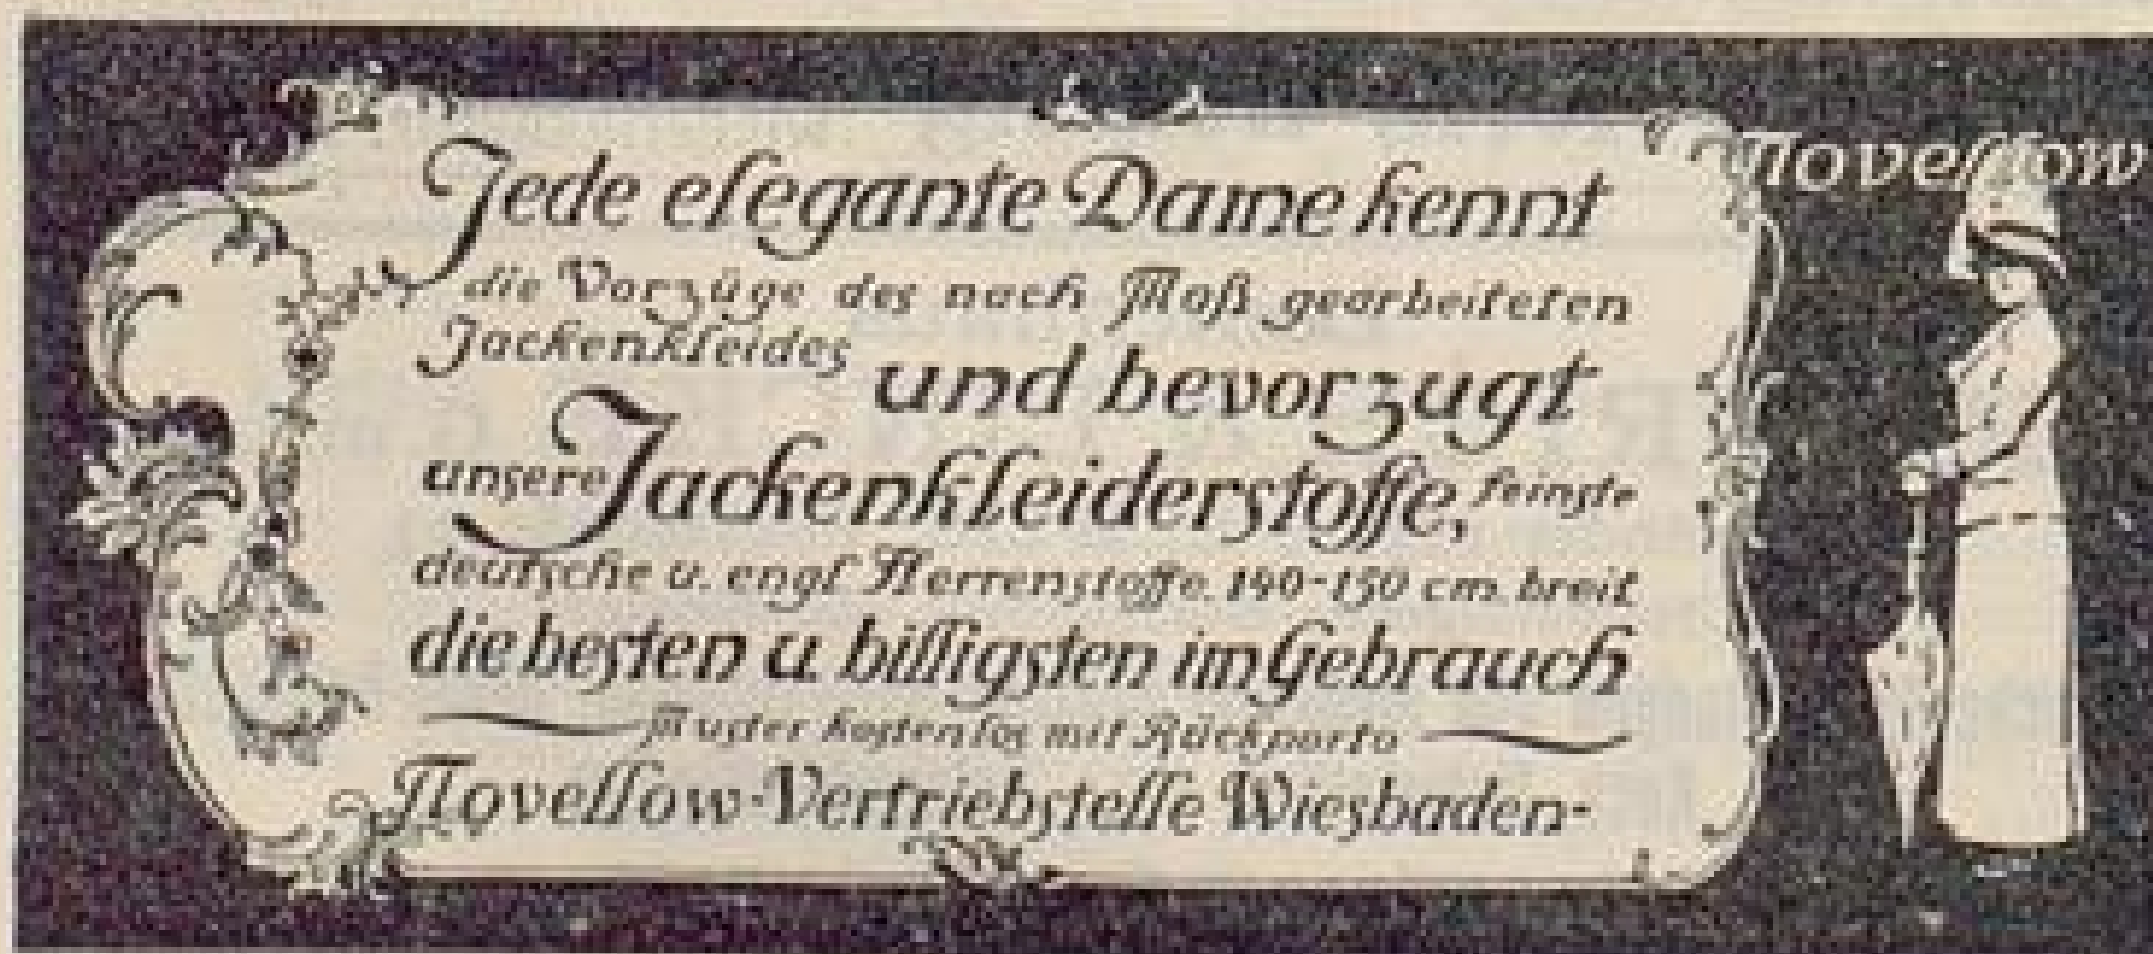 Jede elegante Dame kennt
die Vorzüge des nach Maß gearbeiteten
Jackenkleides und bevorzugt
unsere Jackenkleiderstoffe, feinste
deutsche u. engl. Herrenstoffe. 140-150 cm. breit
die besten u. billigsten im Gebrauch
Muster kostenlos mit Rückporto
Novellow-Vertriebstelle Wiesbaden-
Novellow